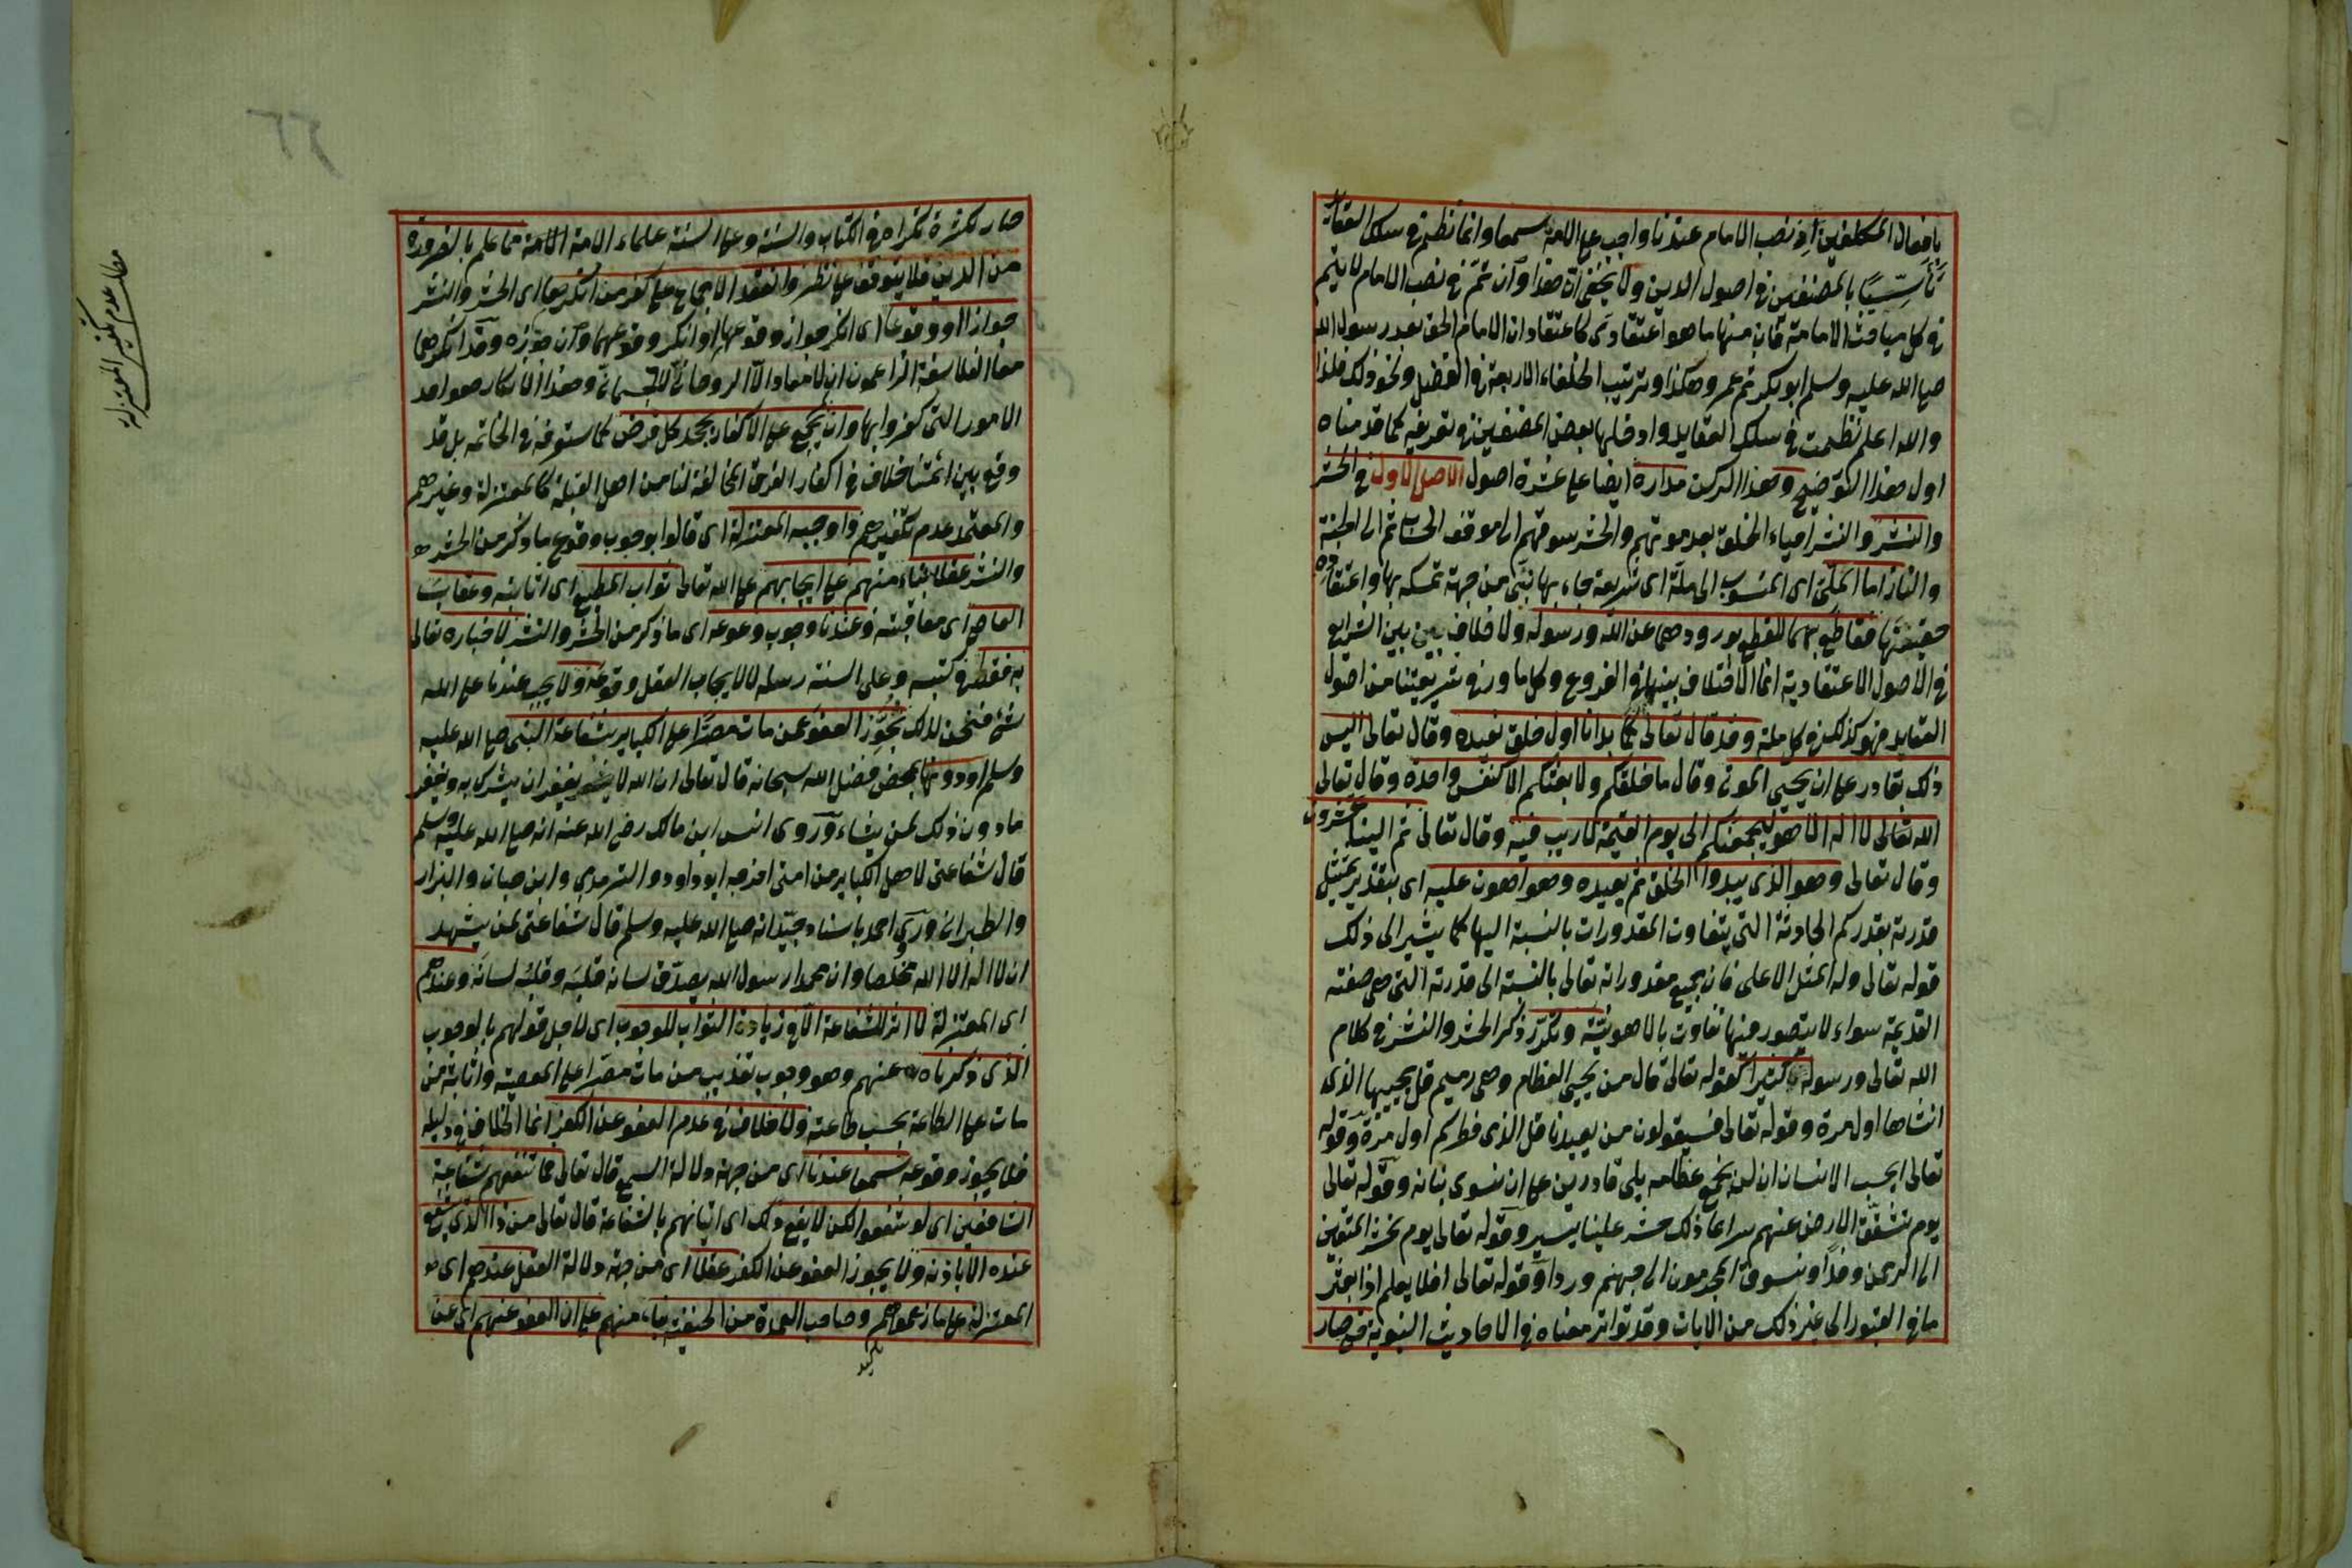 بافعال المكلفين اذ نصب الامام عندنا واجب على الامة سمعا وانما نظم في سلك العقائد
تأسّيًا بالمصنفين في اصول الدين ولا يخفى ان هذا وان تم في نصب الامام لا يتم
في كل مباحث الامامة فان منها ما هو اعتقادي كاعتقاد ان الامام الحق بعد رسول الله
صلى الله عليه وسلم ابو بكر ثم عمر وهكذا وترتيب الخلفاء الاربعة في الفضل ونحو ذلك فلذا
والله اعلم نظمت في سلك العقايد وادخلها بعض المصنفين في تعريفه كما قدمناه
اول هذا التوضيح وهذا الركن مداره ايضا على عشرة اصول الاصل الاول في الحشر
والنشر والنشر احياء الخلق بعد موتهم والحشر سوقهم الى موقف الحساب ثم الى الجنة
والنار اما الملي اى المنسوب الى ملة اى شريعة جاء بها نبي من جهة تمسكه بها واعتقاده
حقيقتها فقاطع بهما للقطع بورودهما عن الله ورسوله ولا خلاف بين بين الشرايع
في الاصول الاعتقادية انما الاختلاف بينها في الفروع وكل ما ورد في شريعتنا من اصول
العقايد فهو كذلك في كل ملة وقد قال تعالى كما بدانا اول خلق نعيده وقال تعالى اليس
ذلك بقادر على ان يحيى الموتى وقال ما خلقكم ولا بعثكم الا كنفس واحدة وقال تعالى
الله تعالى لا اله الا هو ليجمعنكم الى يوم القيمة لا ريب فيه وقال تعالى ثم الينا تحشرون
وقال تعالى وهو الذى يبدوا الخلق ثم يعيده وهو اهون عليه اى بتقدير تمثيل
قدرته بقدركم الحادثة التى يتفاوت المقدورات بالنسبة اليها كما يشير الى ذلك
قوله تعالى وله المثل الاعلى فان جميع مقدوراته تعالى بالنسبة الى قدرته التى هى صفته
القديمة سواء لا يتصور منها تفاوت بالاهونية وتكرر ذكر الحشر والنشر في كلام
الله تعالى ورسوله كثيرا كقوله تعالى قال من يحيى العظام وهى رميم قل يحييها الذى
انشاها اول مرة وقوله تعالى فسيقولون من يعيدنا قل الذى فطركم اول مرة وقوله
تعالى ايحسب الانسان ان لن نجمع عظامه بلى قادرين على ان نسوى بنانه وقوله تعالى
يوم تشقق الارض عنهم سراعا ذلك حشر علينا يسير وقوله تعالى يوم نحشر المتقين
الى الرحمن وفدا ونسوق المجرمون الى جهنم وردا وقوله تعالى افلا يعلم اذا بعثر
ما في القبور الى غير ذلك من الايات وقد تواتر معناه في الاحاديث النبوية حتى صار
صار لكثرة تكراره في الكتاب والسنة وعلى السنة علماء الامة الائمة مما علم بالضرورة
من الدين فلا يتوقف على نظر وانعقد الاجماع على كفر من انكرهما اى الحشر والنشر
جوازا او وقوعا اى انكر جواز وقوعهما او انكر وقوعهما وان جوزه وقد انكرهما
معا الفلاسفة الزاعمون ان لا معاد الا الروحاني لا الجسماني وهذا الانكار هو احد
الامور التى كفروا بها وان يجمع على الاكفار بجحد كل فرض كما ستعرفه في الخاتمه بل قد
وقع بين ائمتنا خلاف في اكفار الفرق المخالفة لنا من اهل القبلة كالمعتزلة وغيرهم
والمعتمد عدم تكفيرهم واوجبه المعتزلة اى قالوا بوجوب وقوع ما ذكر من الحشر
والنشر عقلا بناء منهم على ايجابهم على الله تعالى ثواب المطيع اى اثابته وعقاب
العاصى اى معاقبته وعندنا وجوب وقوعه اى ما ذكر من الحشر والنشر لاخباره تعالى
به فقط في كتبه وعلى السنة رسله لا لايجاب العقل وقوعه ولا يجب عندنا على الله
شئ فنحن لذلك نجوز العفو عمن مات مصرا على الكباير بشفاعة النبى صلى الله عليه
وسلم او دونها بمحض فضل الله سبحانه قال تعالى ان الله لا يغفر ان يشرك به ويغفر
ما دون ذلك لمن يشاء وروى انس ابن مالك رضى الله عنه انه صلى الله عليه وسلم
قال شفاعتى لاهل الكباير من امتى اخرجه ابو داود والترمدى وابن حبان والبزار
والطبرانى وروى احمد باسناد جيد انه صلى الله عليه وسلم قال شفاعتى لمن يشهد
ان لا اله الا الله مخلصا وان محمدا رسول الله يصدق لسانه قلبه وقلبه لسانه وعندهم
اى المعتزلة لا اثر للشفاعة الا في زيادة الثواب للوجوب اى لاجل قولهم بالوجوب
الذى ذكرناه عنهم وهو وجوب تعذيب من مات مصرا على المعصية واثابة من
مات على الطاعة بحسب طاعته ولا خلاف في عدم العفو عن الكفر انما الخلاف في دليله
فلا يجوز وقوعه سمعا عندنا اى من جهة دلالة السمع قال تعالى فما تنفعهم شفاعة
الشافعين اى لو شفعوا لكن لا يقع ذلك اى اتيانهم بالشفاعة قال تعالى من ذا الذى يشفع
عنده الا باذنه ولا يجوز العفو عن الكفر عقلا اى من جهة دلالة العقل عندهم اى
المعتزلة على ما زعموا هم وصاحب العمدة من الحنفية بناء منهم على ان العفو عنهم اى عن
مطلب عدم تكفير المعتزلة